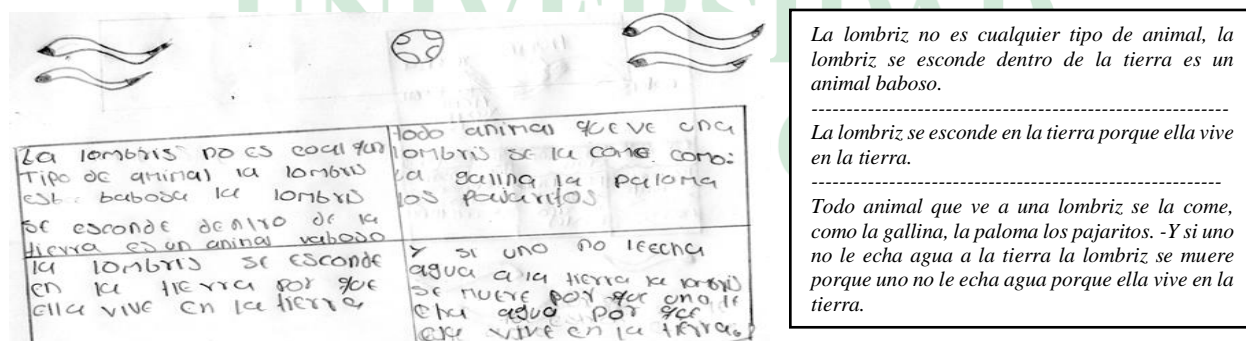 La lombris no es coal qun
Tipo de animal la lombris
es baboso la lombris
se esconde dentro de la
tierra es un animal vaboso
la lombris se esconde
en la tierra por que
ella vive en la tierra
todo animal que ve una
lombris se la come como:
La gallna la paloma
los pavaritos
Y si uno no leecha
agua a la tierra la lombris
se muere por que uno le
cha agua por que
ella vive en la tierra
La lombriz no es cualquier tipo de animal, la
lombriz se esconde dentro de la tierra es un
animal baboso.
-----------------------------------------------------------
La lombriz se esconde en la tierra porque ella vive
en la tierra.
----------------------------------------------------------
Todo animal que ve a una lombriz se la come,
como la gallina, la paloma los pajaritos. -Y si uno
no le echa agua a la tierra la lombriz se muere
porque uno no le echa agua porque ella vive en la
tierra.